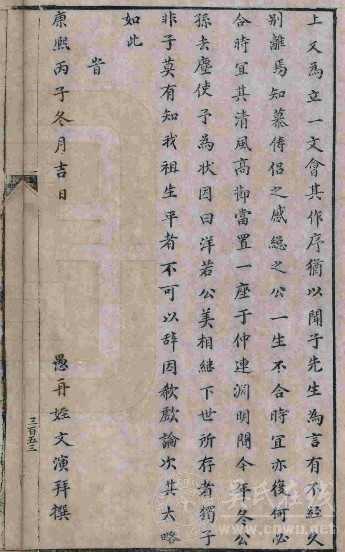 上又為立一文會其作序猶以聞子先生為言有不經久
别離焉知慕儔侣之感繐之公一生不合時宜亦復何必
合時宜其清風高節當置一座于仲連淵明間今年冬公
孫去塵使予為狀因曰洋若公美相繼下世所存者獨子
非子莫有知我祖生平者不可以辞因欷歔論次其大略
如此
旹
康熙丙子冬月吉日
愚再姪文演拜撰
三百五三
吴氏在线
www.cnwu.net